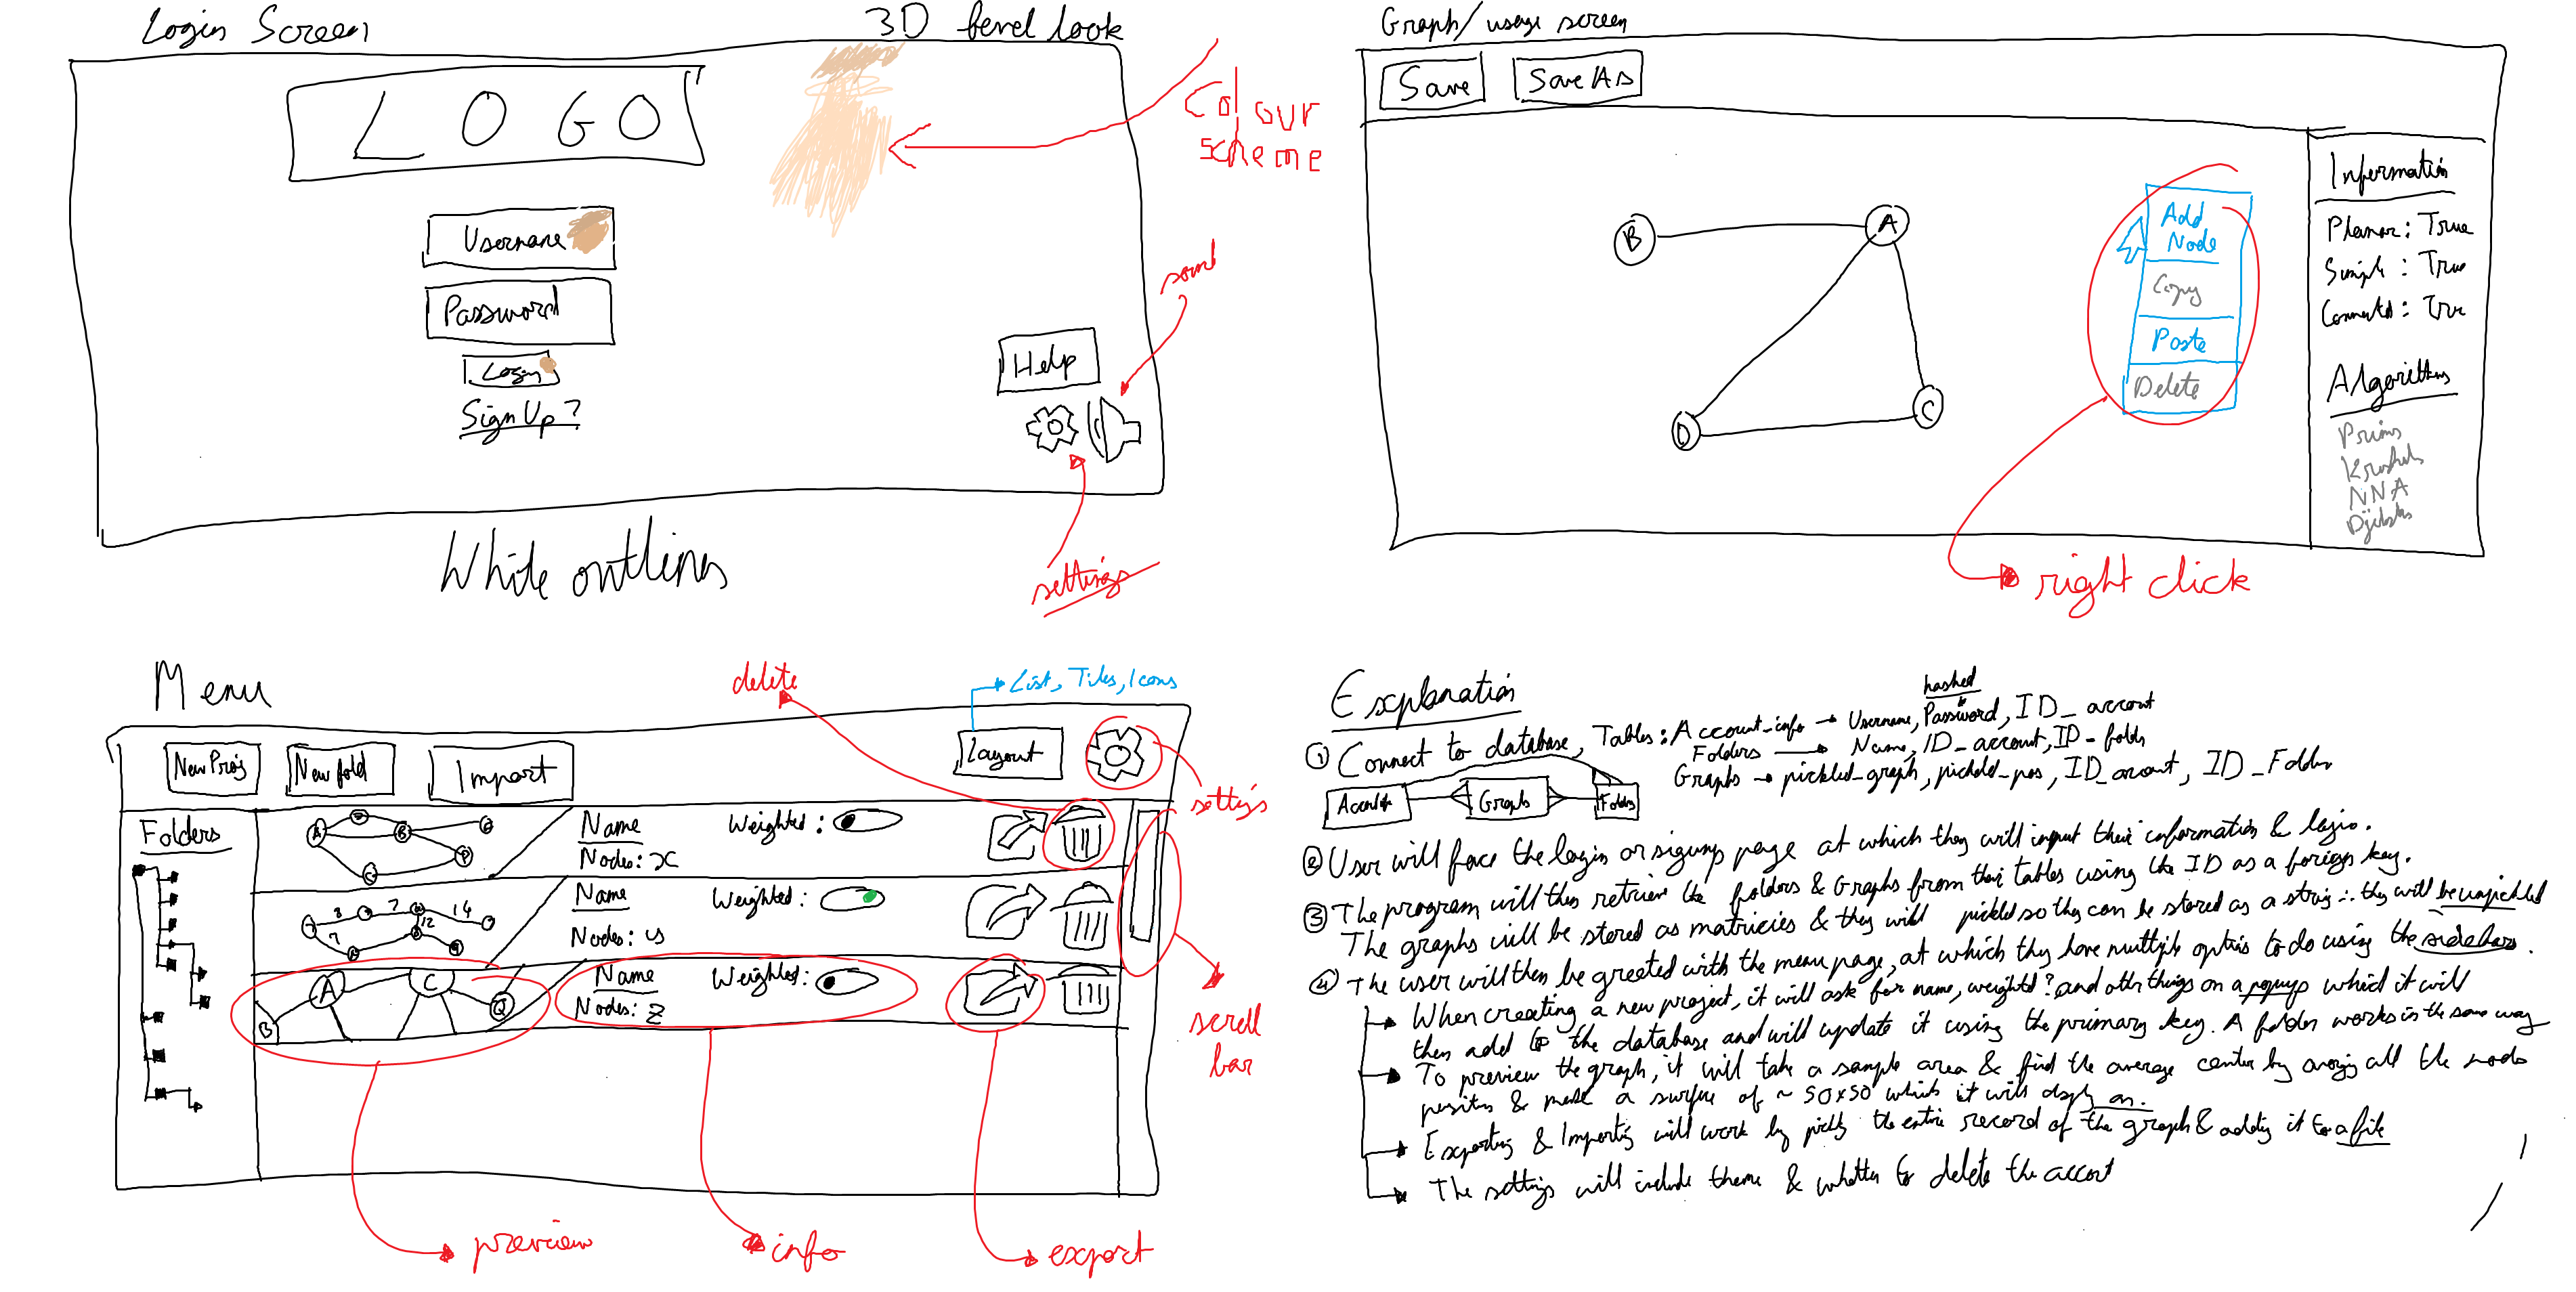 Login Screen
3D bevel look
LOGO
Colour
scheme
Username
Password
Login
Sign Up?
Help
sound
settings
White outlines
Graph/usage screen
Save
Save As
B
A
D
C
Add
Node
Copy
Paste
Delete
right click
Information
Planar: True
Simple: True
Connected: True
Algorithms
Prims
Kruskals
NNA
Djikstras
Menu
delete
List, Tiles, Icons
New Proj
New fold
Import
Layout
settings
Folders
A
B
C
Name
Weighted:
Nodes: x
3
7
14
12
7
Name
Weighted:
Nodes:
A
C
B
Q
Name
Weighted:
Nodes: z
scroll
bar
preview
info
export
Explanation
hashed
① Connect to database, Tables: Account_info → Username, Password, ID_account
Folders → Name, ID_account, ID_folder
Graphs → pickled_graph, pickled_pos, ID_account, ID_Folder
Graph
② User will face the login or signup page at which they will input their information & login.
The program will then retrieve the folders & Graphs from their tables using the ID as a foriegn key.
③ The graphs will be stored as matricies & they will pickled so they can be stored as a string ∴ they will be unpickled
④ The user will then be greeted with the menu page, at which they have multiple options to do using the sidebars.
→ When creating a new project, it will ask for name, weighted? and other things on a popup which it will
then add to the database and will update it using the primary key. A folder works in the same way
→ To preview the graph, it will take a sample area & find the average center by all the node
positions & make a surface of ~ 50x50 which it will display on.
→ Exporting & Importing will work by the entire record of the graph & adding it to a file
→ The settings will include theme & whether to delete the account